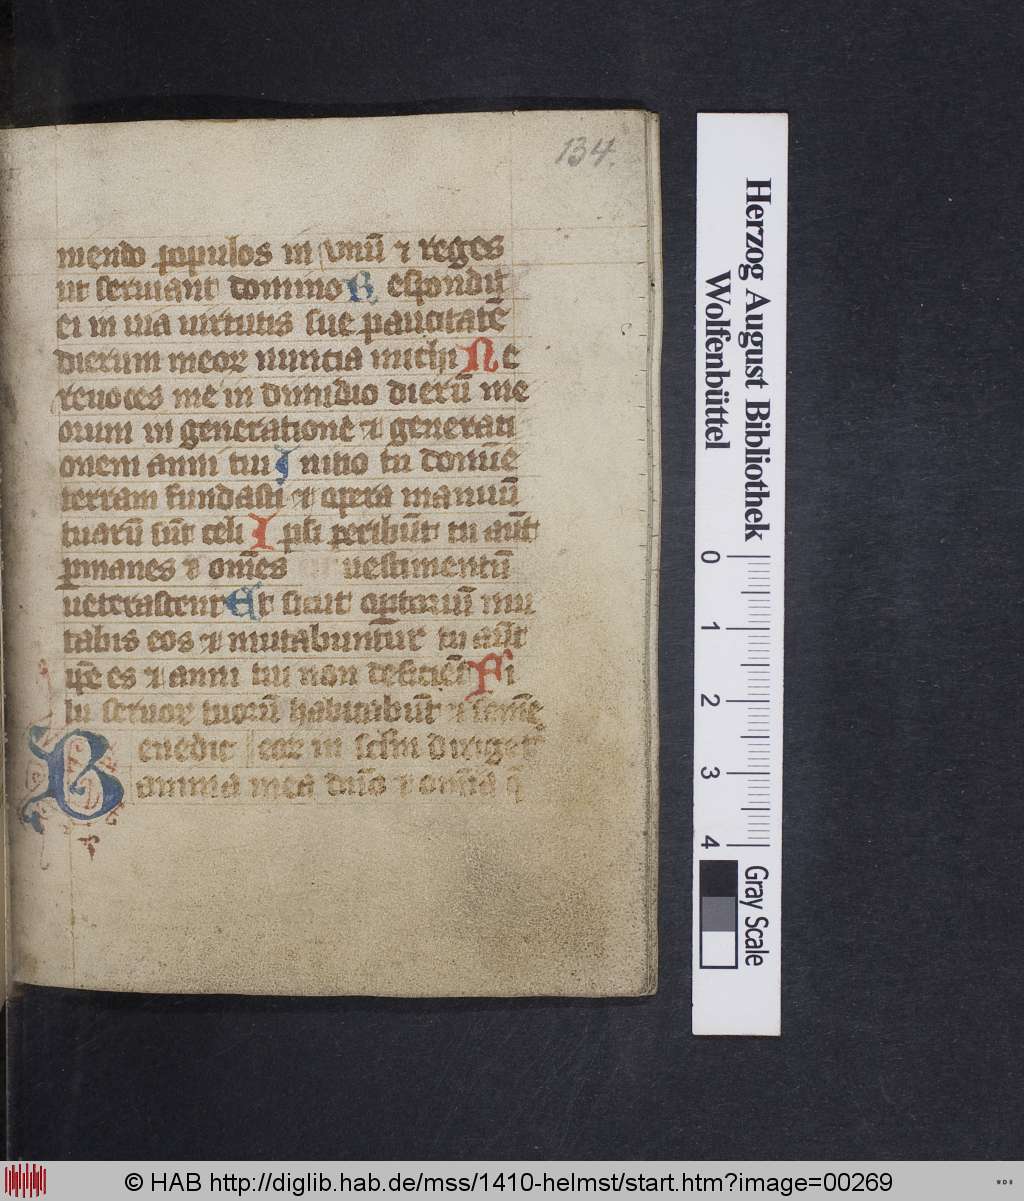 134.
niendo populos in vnū ⁊ reges
ut seruiant domino R espondit
ei in uia uirtutis sue paucitatē
dierum meoꝝ nuncia michi N e
reuoces me in dimidio dierū me
orum in generationē ⁊ generati
onem anni tui I nitio tu domīe
terram fundasti ⁊ opera manuū
tuarū sūt celi I psi peribūt tu aūt
ꝑmanes ⁊ om̄es uestimentū
ueterascent E t sicut optoriū mu
tabis eos ⁊ mutabuntur tu aūt
ip̄e es ⁊ anni tui non deficiēt F i
lii seruoꝝ tuorū habitabūt ⁊ semē
eoꝝ in sc̄lm dirigetur
B enedic
anima mea dn̄o ⁊ om̄ia q̄
Herzog August Bibliothek
Wolfenbüttel
0 1 2 3 4
Gray Scale
© HAB http://diglib.hab.de/mss/1410-helmst/start.htm?image=00269